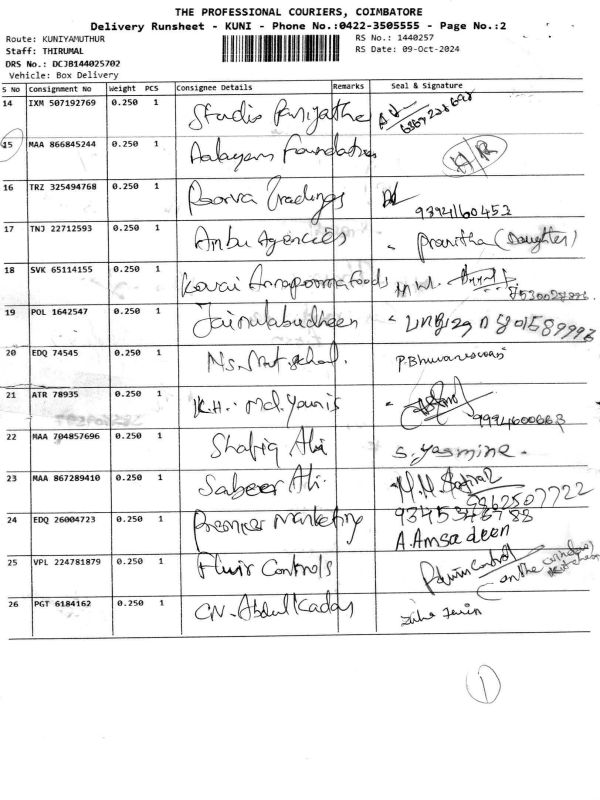 THE PROFESSIONAL COURIERS, COIMBATORE
Delivery Runsheet - KUNI - Phone No.:0422-3505555 - Page No.:2
Route: KUNIYAMUTHUR RS No.: 1440257
Staff: THIRUMAL RS Date: 09-Oct-2024
DRS No.: DCJB144025702
Vehicle: Box Delivery
S No Consignment No Weight PCS Consignee Details Remarks Seal & Signature
14 IXM 507192769 0.250 1
15 MAA 866845244 0.250 1 Aalayam Foundation HR
16 TRZ 325494768 0.250 1 Poorva Tradings
9394160452
17 TNJ 22712593 0.250 1 Anbu Agencies Pravitha (Daughter)
18 SVK 65114155 0.250 1 Kovai Annapoorna Foods
19 POL 1642547 0.250 1 Jainulabudheen
20 EDQ 74545 0.250 1 P. Bhuvaneswari
21 ATR 78935 0.250 1 K.H. Md. Younis
9994600663
22 MAA 704857696 0.250 1 Shafiq Ali S. Yasmine.
23 MAA 867289410 0.250 1 Sabeer Ali.
9362507722
24 EDQ 26004723 0.250 1 Premier Marketing 9345376788
A. Amsadeen
25 VPL 224781879 0.250 1 Fluir Controls
26 PGT 6184162 0.250 1 CN. Abdul Kadar
1